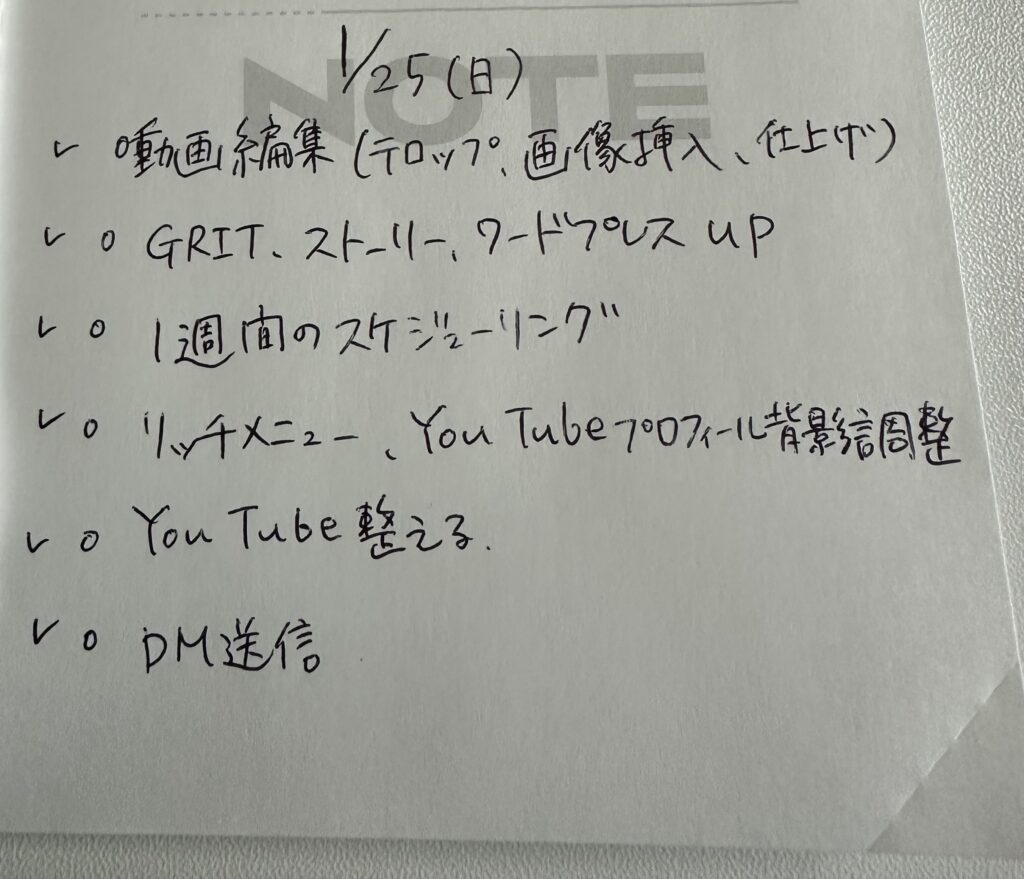 NOTE
1/25(日)
✓ ○動画編集(テロップ、画像挿入、仕上げ)
✓ ○ GRIT、ストーリー、ワードプレス UP
✓ ○ 1週間のスケジューリング
✓ ○ リッチメニュー、YouTubeプロフィール背景調整
✓ ○ YouTube整える.
✓ ○ DM送信